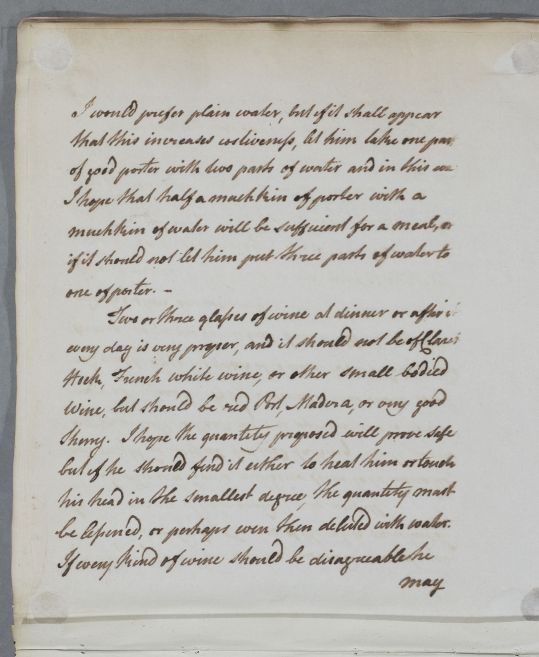 I would prefer plain water, but if it shall appear
that this increases costiveness, let him take one part
of good porter with two parts of water and in this
I hope that half a muchkin of porter with a
muchkin of water will be sufficient for a meal, or
if it should not let him put three parts of water to
one of porter. –
Two or three glasses of wine at dinner or after it
every day is very proper, and it should not be of Claret
Hock, French white wine, or other small bodied
Wine, but should be red Port, Madera, or very good
Sherry. I hope the quantity proposed will prove safe
but if he should find it either to heat him or touch
his head in the smallest degree, the quantity must
be lessened, or perhaps even then deluted with water.
If every kind of wine should be disagreeable he
may